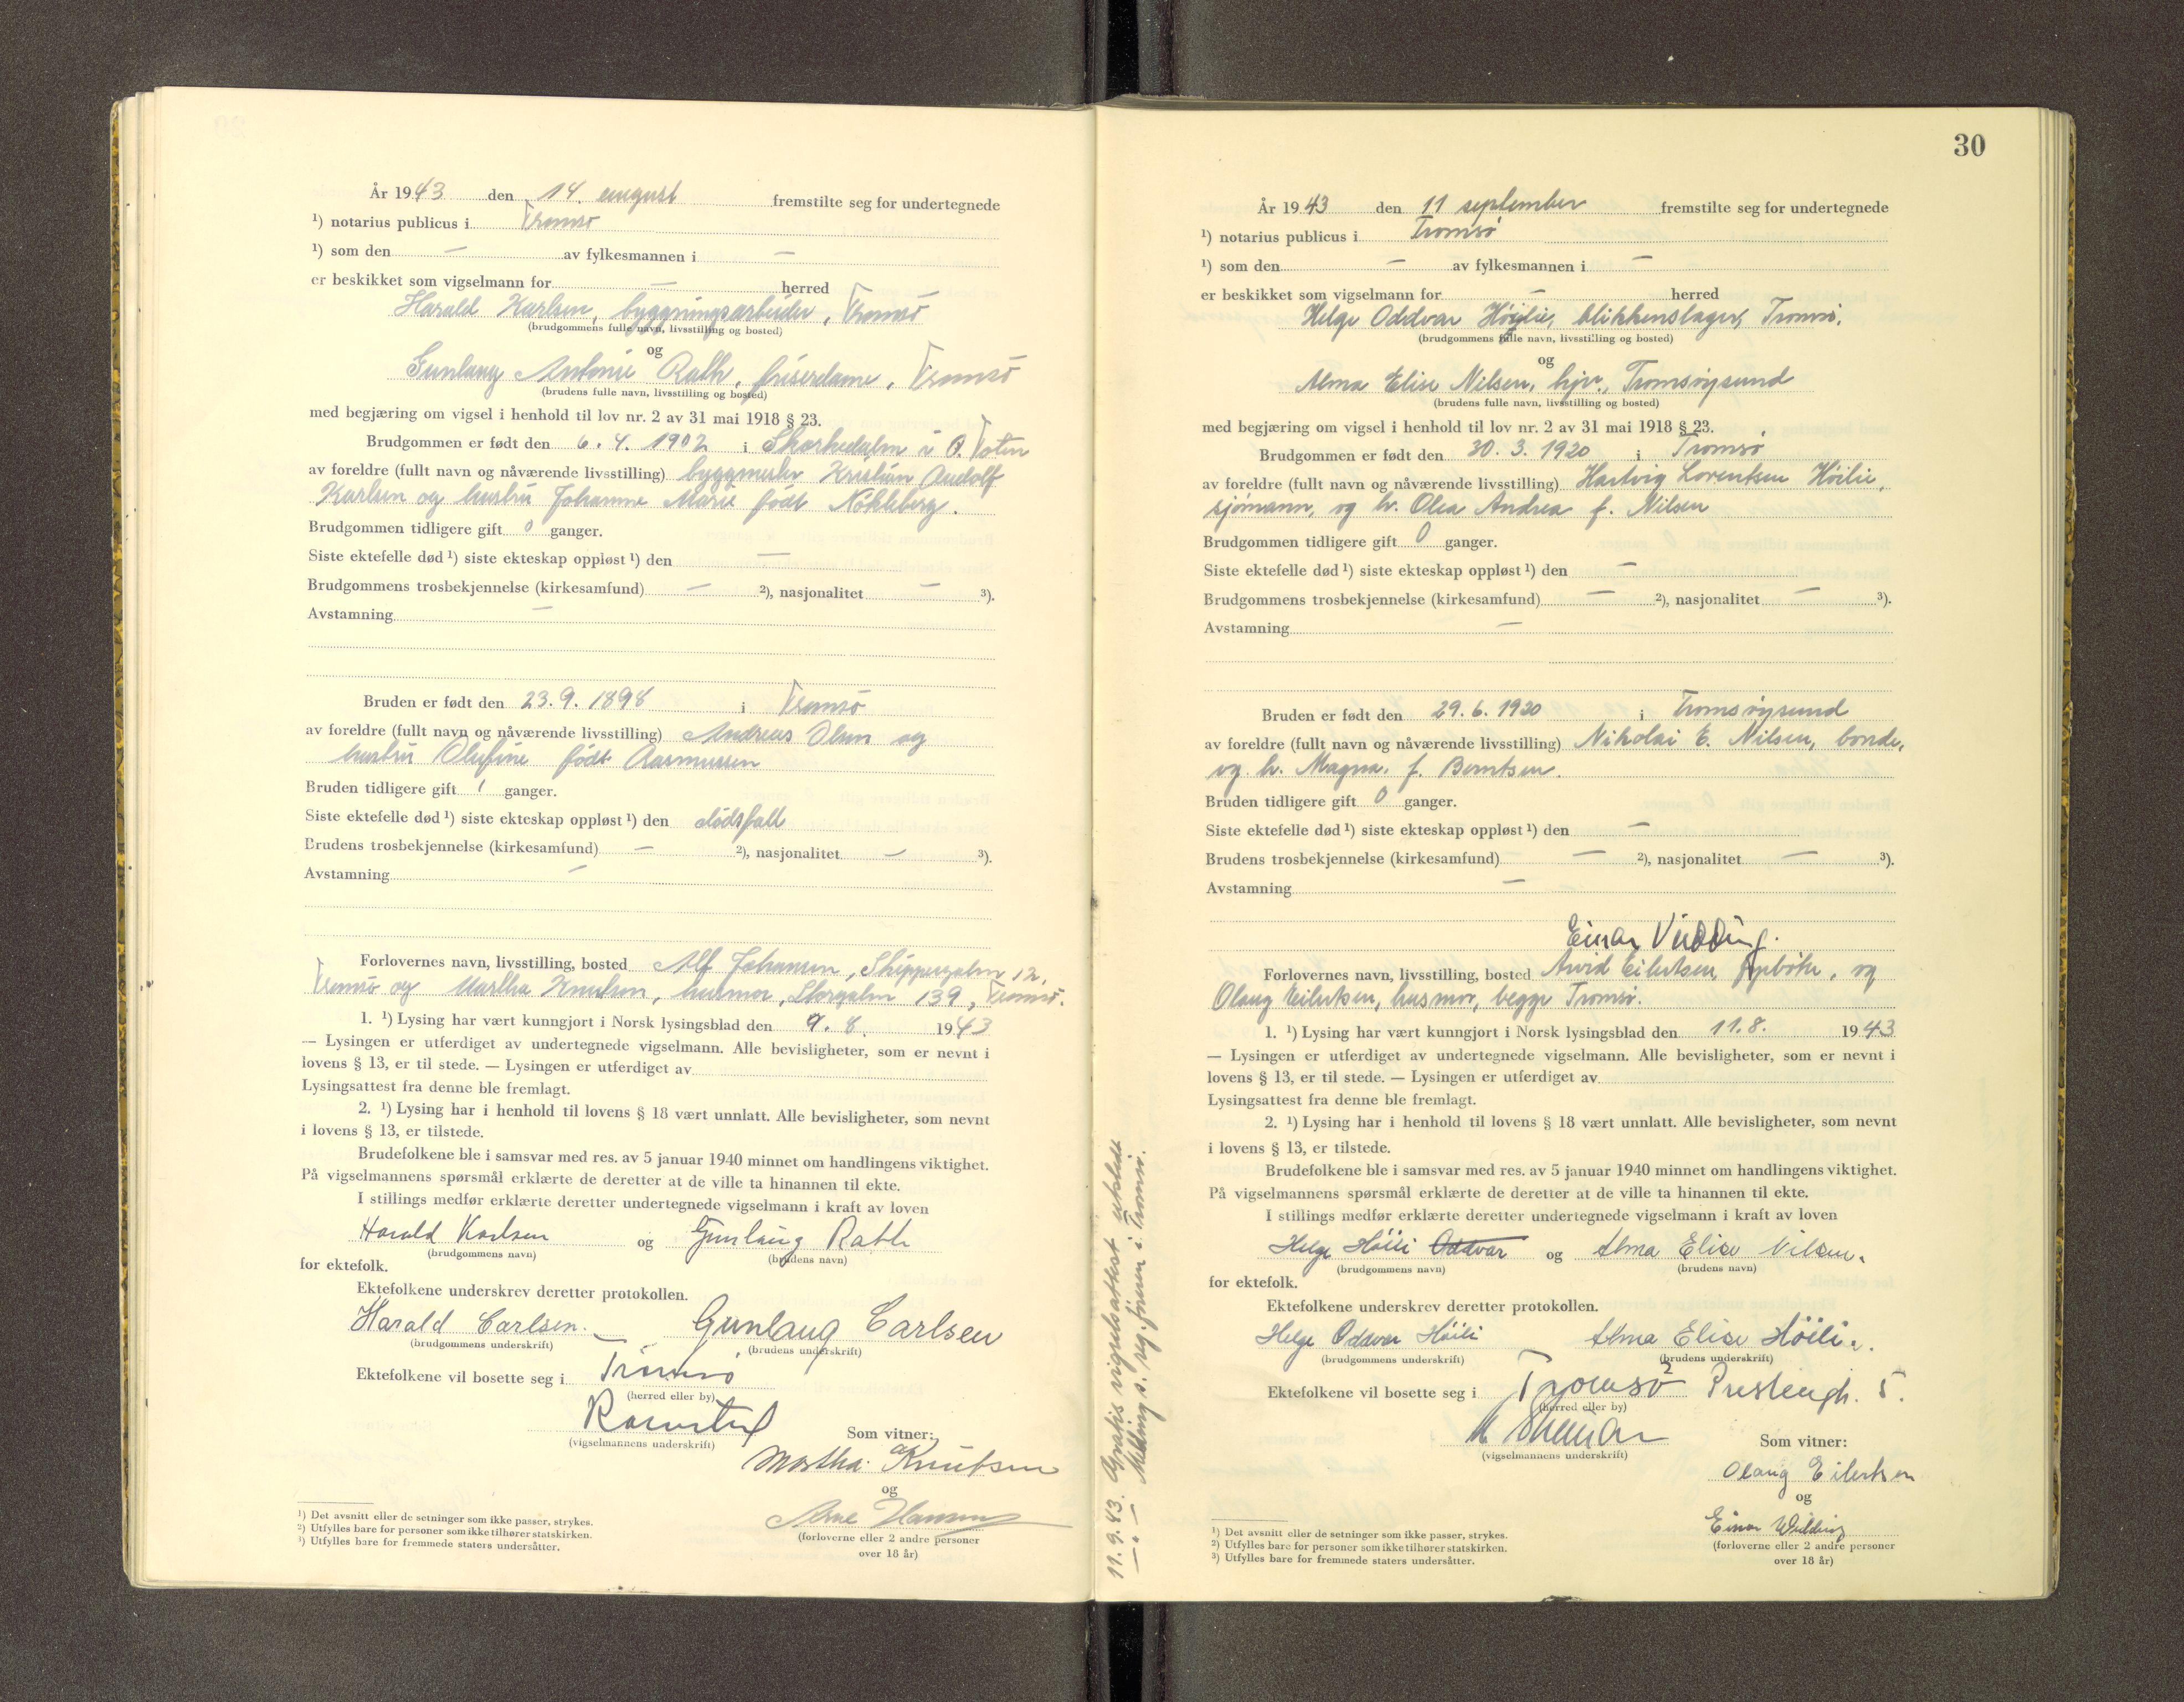 År 1943 den 14. august fremstilte seg for undertegnede
¹) notarius publicus i Tromsø
¹) som den — av fylkesmannen i —
er beskikket som vigselmann for — herred
Harald Karlsen, byggningsarbeider, Tromsø
(brudgommens fulle navn, livsstilling og bosted)
og
Gunlaug Antonie Rath, friserdame, Tromsø
(brudens fulle navn, livsstilling og bosted)
med begjæring om vigsel i henhold til lov nr. 2 av 31 mai 1918 § 23.
Brudgommen er født den 6. 4. 1902 i i Ø. Toten
av foreldre (fullt navn og nåværende livsstilling) byggmester Kristian Rudolf
Karlsen og hustru Johanne Marie født Nøkleberg.
Brudgommen tidligere gift 0 ganger.
Siste ektefelle død ¹) siste ekteskap oppløst ¹) den —
Brudgommens trosbekjennelse (kirkesamfund) — ²), nasjonalitet — ³).
Avstamning —
Bruden er født den 23. 9. 1898 i Tromsø
av foreldre (fullt navn og nåværende livsstilling) Andreas Olsen og
hustru Olufine født Rasmussen
Bruden tidligere gift 1 ganger.
Siste ektefelle død ¹) siste ekteskap oppløst ¹) den dødsfall
Brudens trosbekjennelse (kirkesamfund) — ²), nasjonalitet — ³).
Avstamning —
Forlovernes navn, livsstilling, bosted Alf Johansen, Skippergaten 12,
Tromsø og Martha Knutsen, husmor, Storgaten 139, Tromsø.
1. ¹) Lysing har vært kunngjort i Norsk lysingsblad den 9. 8. 1943
— Lysingen er utferdiget av undertegnede vigselmann. Alle bevisligheter, som er nevnt i
lovens § 13, er til stede. — Lysingen er utferdiget av
Lysingsattest fra denne ble fremlagt.
2. ¹) Lysing har i henhold til lovens § 18 vært unnlatt. Alle bevisligheter, som nevnt
i lovens § 13, er tilstede.
Brudefolkene ble i samsvar med res. av 5 januar 1940 minnet om handlingens viktighet.
På vigselmannens spørsmål erklærte de deretter at de ville ta hinannen til ekte.
I stillings medfør erklærte deretter undertegnede vigselmann i kraft av loven
Harald Karlsen og Gunlaug Rath
(brudgommens navn) (brudens navn)
for ektefolk.
Ektefolkene underskrev deretter protokollen.
Harald Carlsen. Gunlaug Carlsen
(brudgommens underskrift) (brudens underskrift)
Ektefolkene vil bosette seg i Tromsø
(herred eller by)
(vigselmannens underskrift)
Som vitner:
Martha Knutsen
og
Arne Hansen
(forloverne eller 2 andre personer
over 18 år)
¹) Det avsnitt eller de setninger som ikke passer, strykes.
²) Utfylles bare for personer som ikke tilhører statskirken.
³) Utfylles bare for fremmede staters undersåtter.
11.9.43. Gratis vigselsattest utstedt
— " — Melding s. reg. føreren i Tromsø.
30
År 1943 den 11 september fremstilte seg for undertegnede
¹) notarius publicus i Tromsø
¹) som den — av fylkesmannen i —
er beskikket som vigselmann for — herred
Helge Oddvar Høilie, blikkenslager, Tromsø.
(brudgommens fulle navn, livsstilling og bosted)
og
Alma Elise Nilsen, hjv., Tromsøysund
(brudens fulle navn, livsstilling og bosted)
med begjæring om vigsel i henhold til lov nr. 2 av 31 mai 1918 § 23.
Brudgommen er født den 30. 3. 1920 i Tromsø
av foreldre (fullt navn og nåværende livsstilling) Hartvig Lorentsen Høilie,
sjømann, og h. Olea Andrea f. Nilsen
Brudgommen tidligere gift 0 ganger.
Siste ektefelle død ¹) siste ekteskap oppløst ¹) den —
Brudgommens trosbekjennelse (kirkesamfund) — ²), nasjonalitet — ³).
Avstamning —
Bruden er født den 29. 6. 1920 i Tromsøysund
av foreldre (fullt navn og nåværende livsstilling) Nikolai E. Nilsen, bonde,
og h. Magna. f. Berntsen.
Bruden tidligere gift 0 ganger.
Siste ektefelle død ¹) siste ekteskap oppløst ¹) den —
Brudens trosbekjennelse (kirkesamfund) — ²), nasjonalitet — ³).
Avstamning —
Einar Vidding.
Forlovernes navn, livsstilling, bosted Arvid Eilertsen, fyrbøter, og
Olaug Eilertsen, husmor, begge Tromsø.
1. ¹) Lysing har vært kunngjort i Norsk lysingsblad den 11. 8. 1943
— Lysingen er utferdiget av undertegnede vigselmann. Alle bevisligheter, som er nevnt i
lovens § 13, er til stede. — Lysingen er utferdiget av
Lysingsattest fra denne ble fremlagt.
2. ¹) Lysing har i henhold til lovens § 18 vært unnlatt. Alle bevisligheter, som nevnt
i lovens § 13, er tilstede.
Brudefolkene ble i samsvar med res. av 5 januar 1940 minnet om handlingens viktighet.
På vigselmannens spørsmål erklærte de deretter at de ville ta hinannen til ekte.
I stillings medfør erklærte deretter undertegnede vigselmann i kraft av loven
Helge Høili Oddvar og Alma Elise Nilsen.
(brudgommens navn) (brudens navn)
for ektefolk.
Ektefolkene underskrev deretter protokollen.
Helge Oddvar Høili Alma Elise Høili.
(brudgommens underskrift) (brudens underskrift)
Ektefolkene vil bosette seg i Tromsø 5.
(herred eller by)
(vigselmannens underskrift)
Som vitner:
Olaug Eilertsen
og
Einar Widding
(forloverne eller 2 andre personer
over 18 år)
¹) Det avsnitt eller de setninger som ikke passer, strykes.
²) Utfylles bare for personer som ikke tilhører statskirken.
³) Utfylles bare for fremmede staters undersåtter.